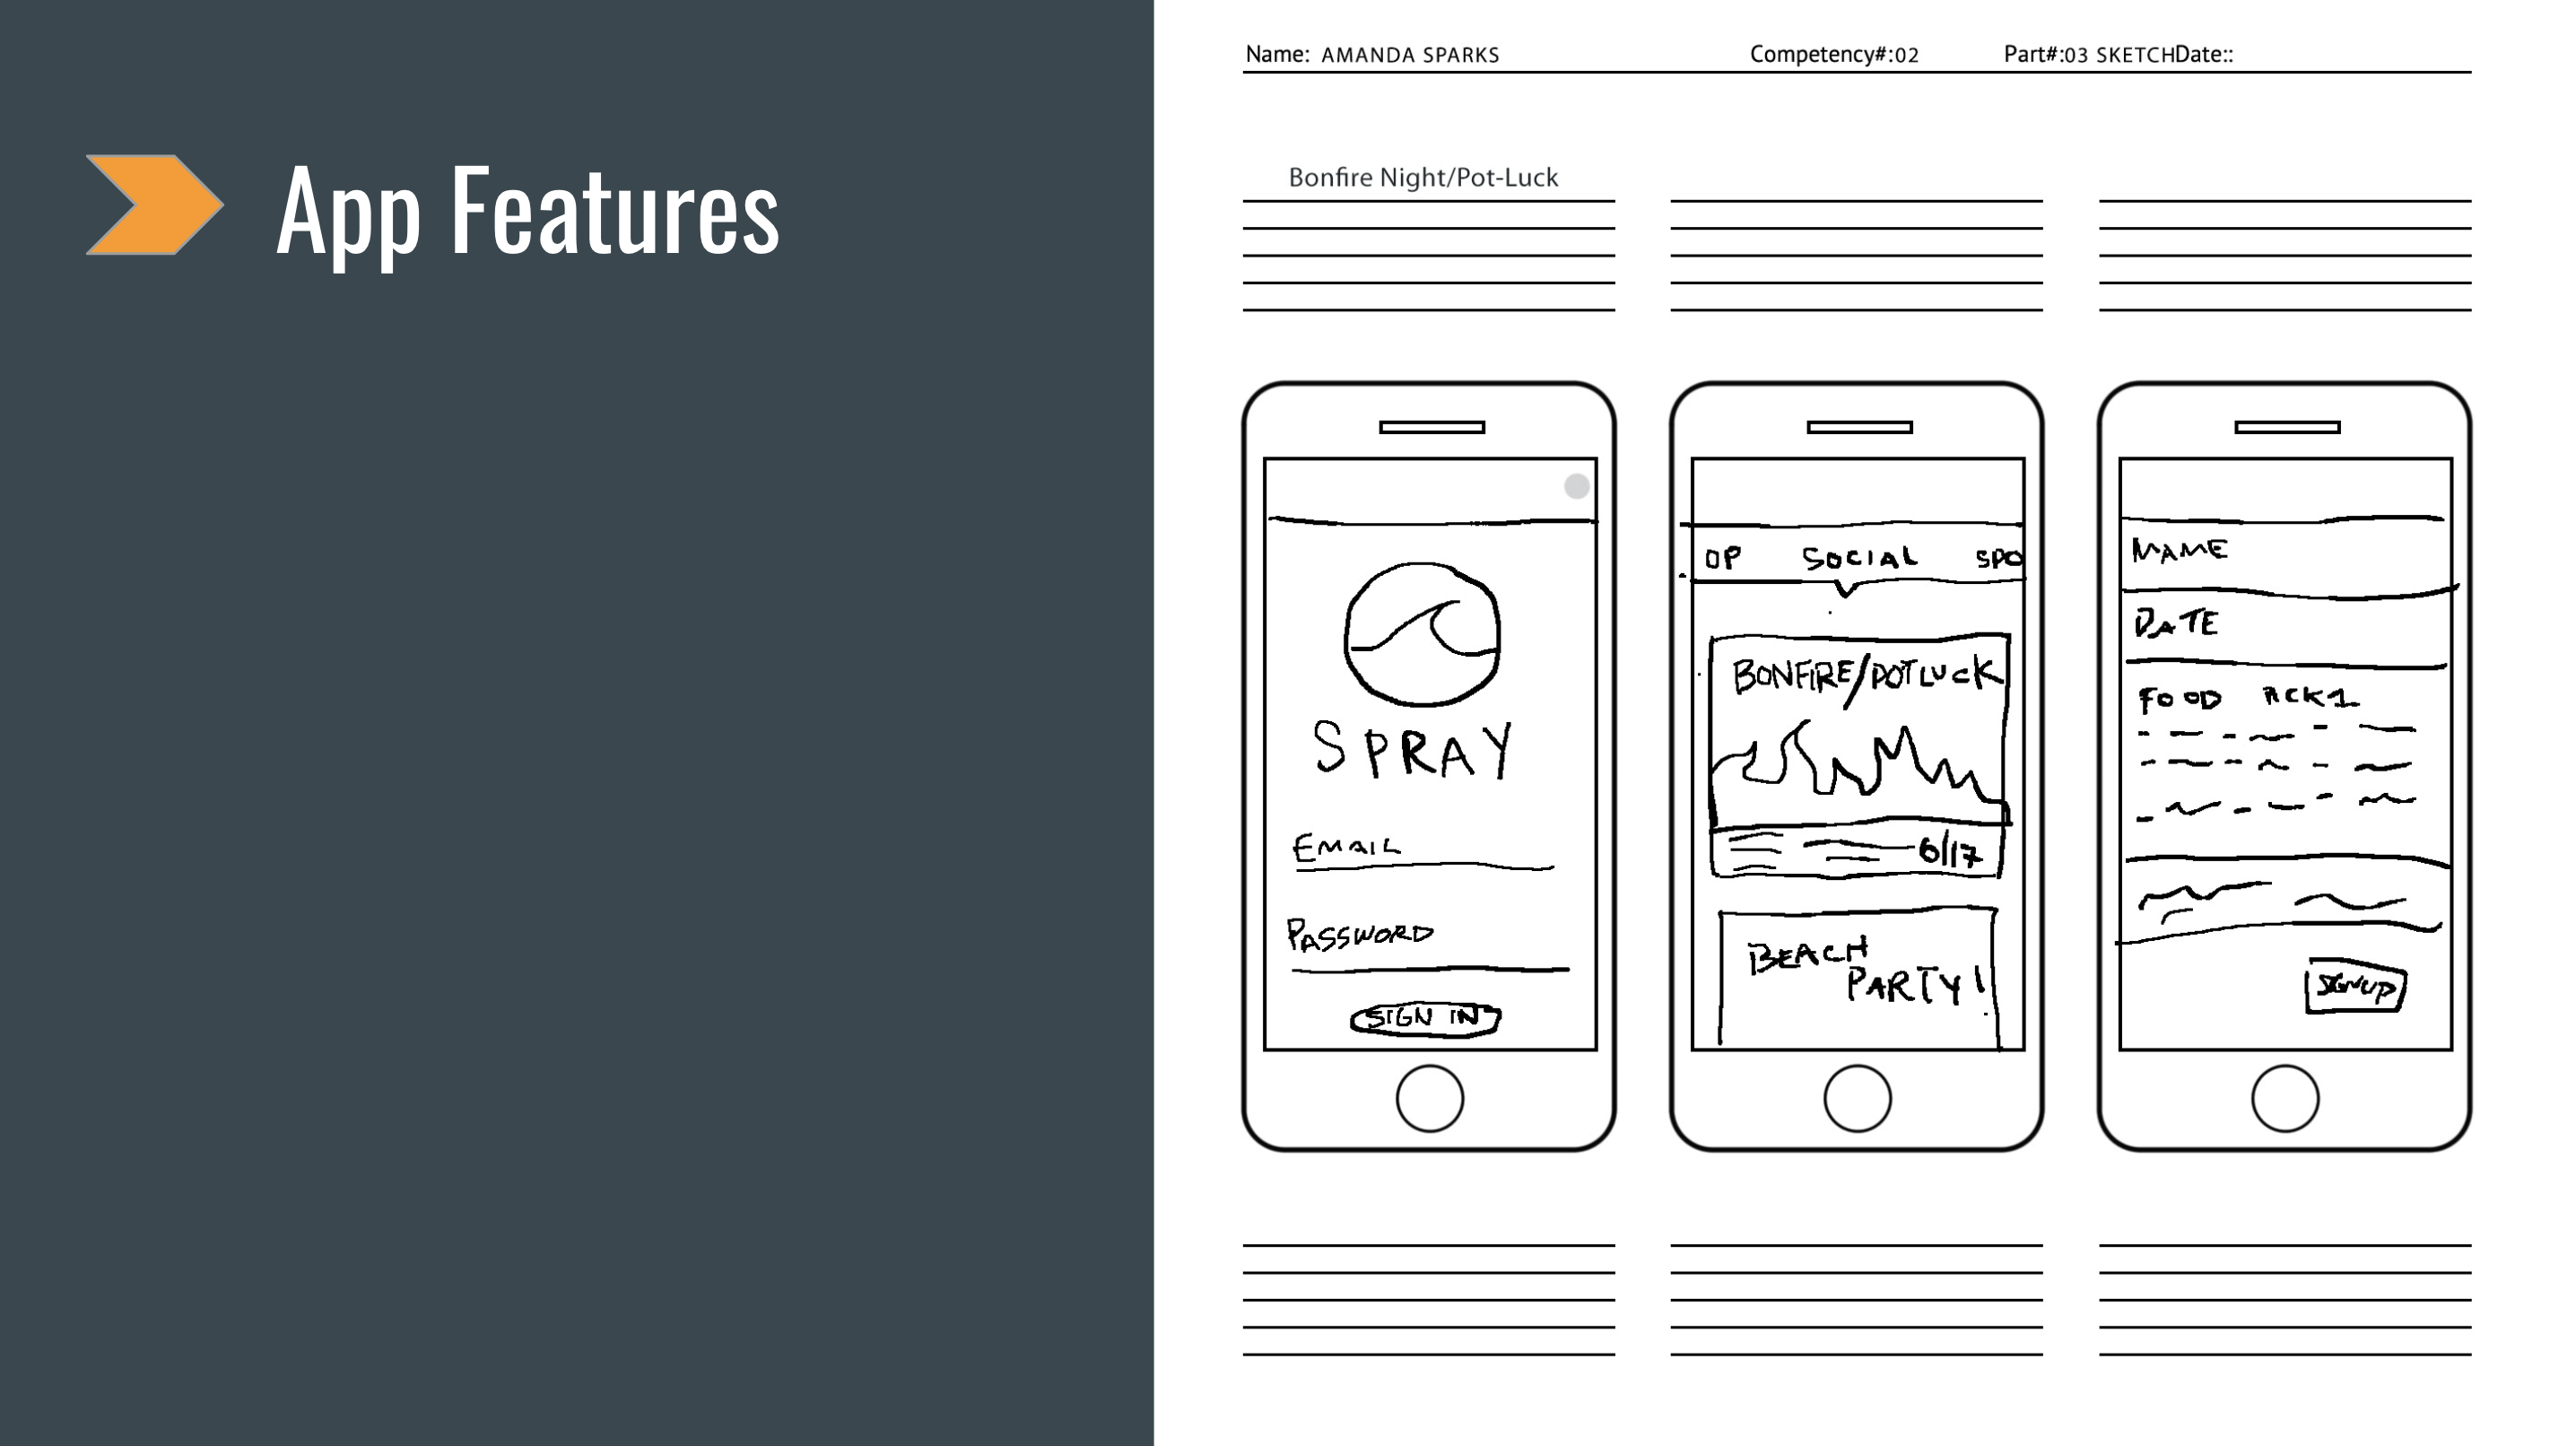 App Features
Name: AMANDA SPARKS Competency#:02 Part#:03 SKETCHDate::
Bonfire Night/Pot-Luck
SPRAY
EMAIL
PASSWORD
SIGN IN
OP SOCIAL SPO
BONFIRE/POTLUCK
6/17
BEACH
PARTY!
NAME
DATE
FOOD PICK 1
SIGN UP